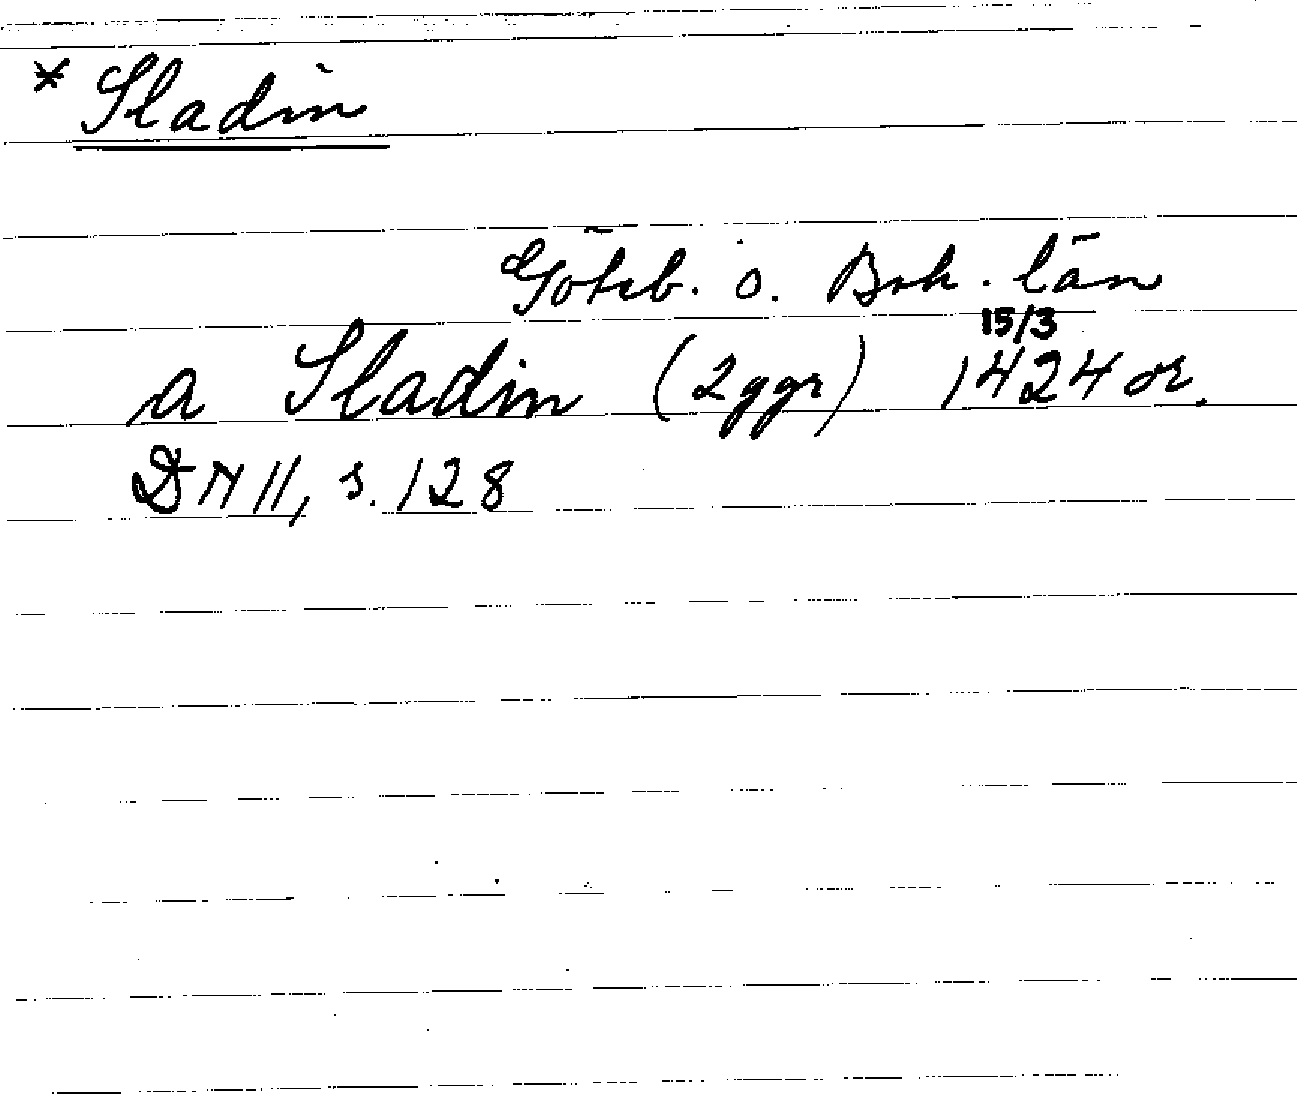 * Sladin
Göteb. o. Boh. län
15/3
a Sladin (2 ggr) 1424 or.
DN 11, s. 128